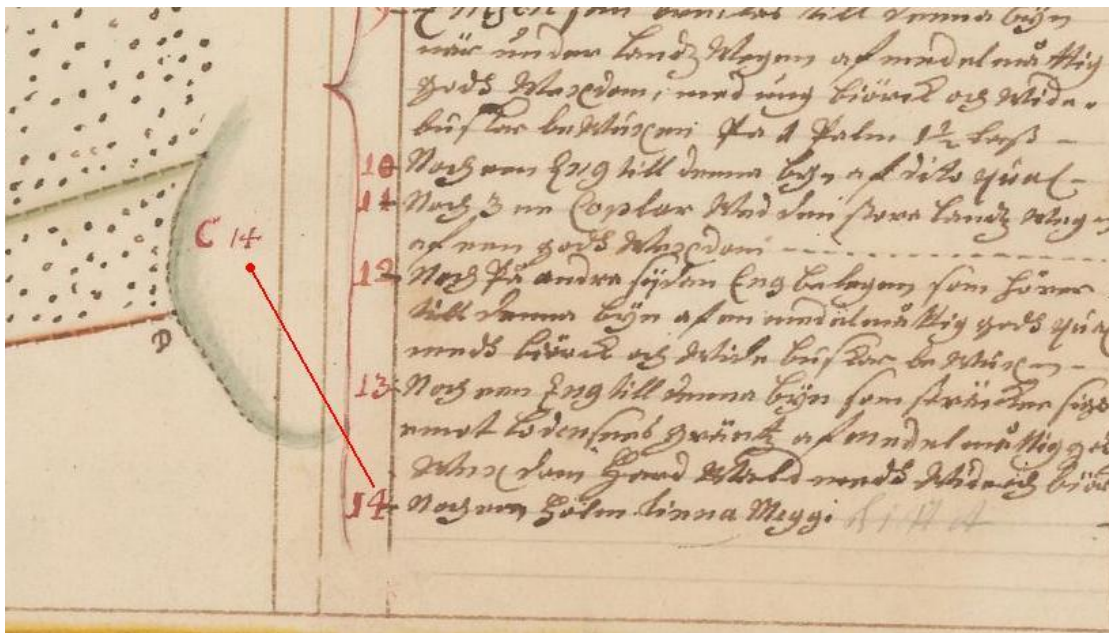 när under landz Wegen af medelmåttig
godh Wexdom, med ung biörck och Wide-
buskar bewuxen Pa 1 Palm 1½ lass
10 Noch een Eng till denna by af dito qual-
11 Noch 3 ne Coplar Wed den stora landz Weg-
af een godh Wexdom
12 Noch På andra sydan Eng belegen som hörer
till denna byn af en medelmåttig godh qual
medh biörck och Wide buskar bewuxen
13 Noch een Eng till denna byn som sträcker sigh
emot Lodensnes gräntz af medelmåttig god
Wexdom Hard Wald medh Wide och biör
14 Noch een Holm linna Meggi
C 14
D